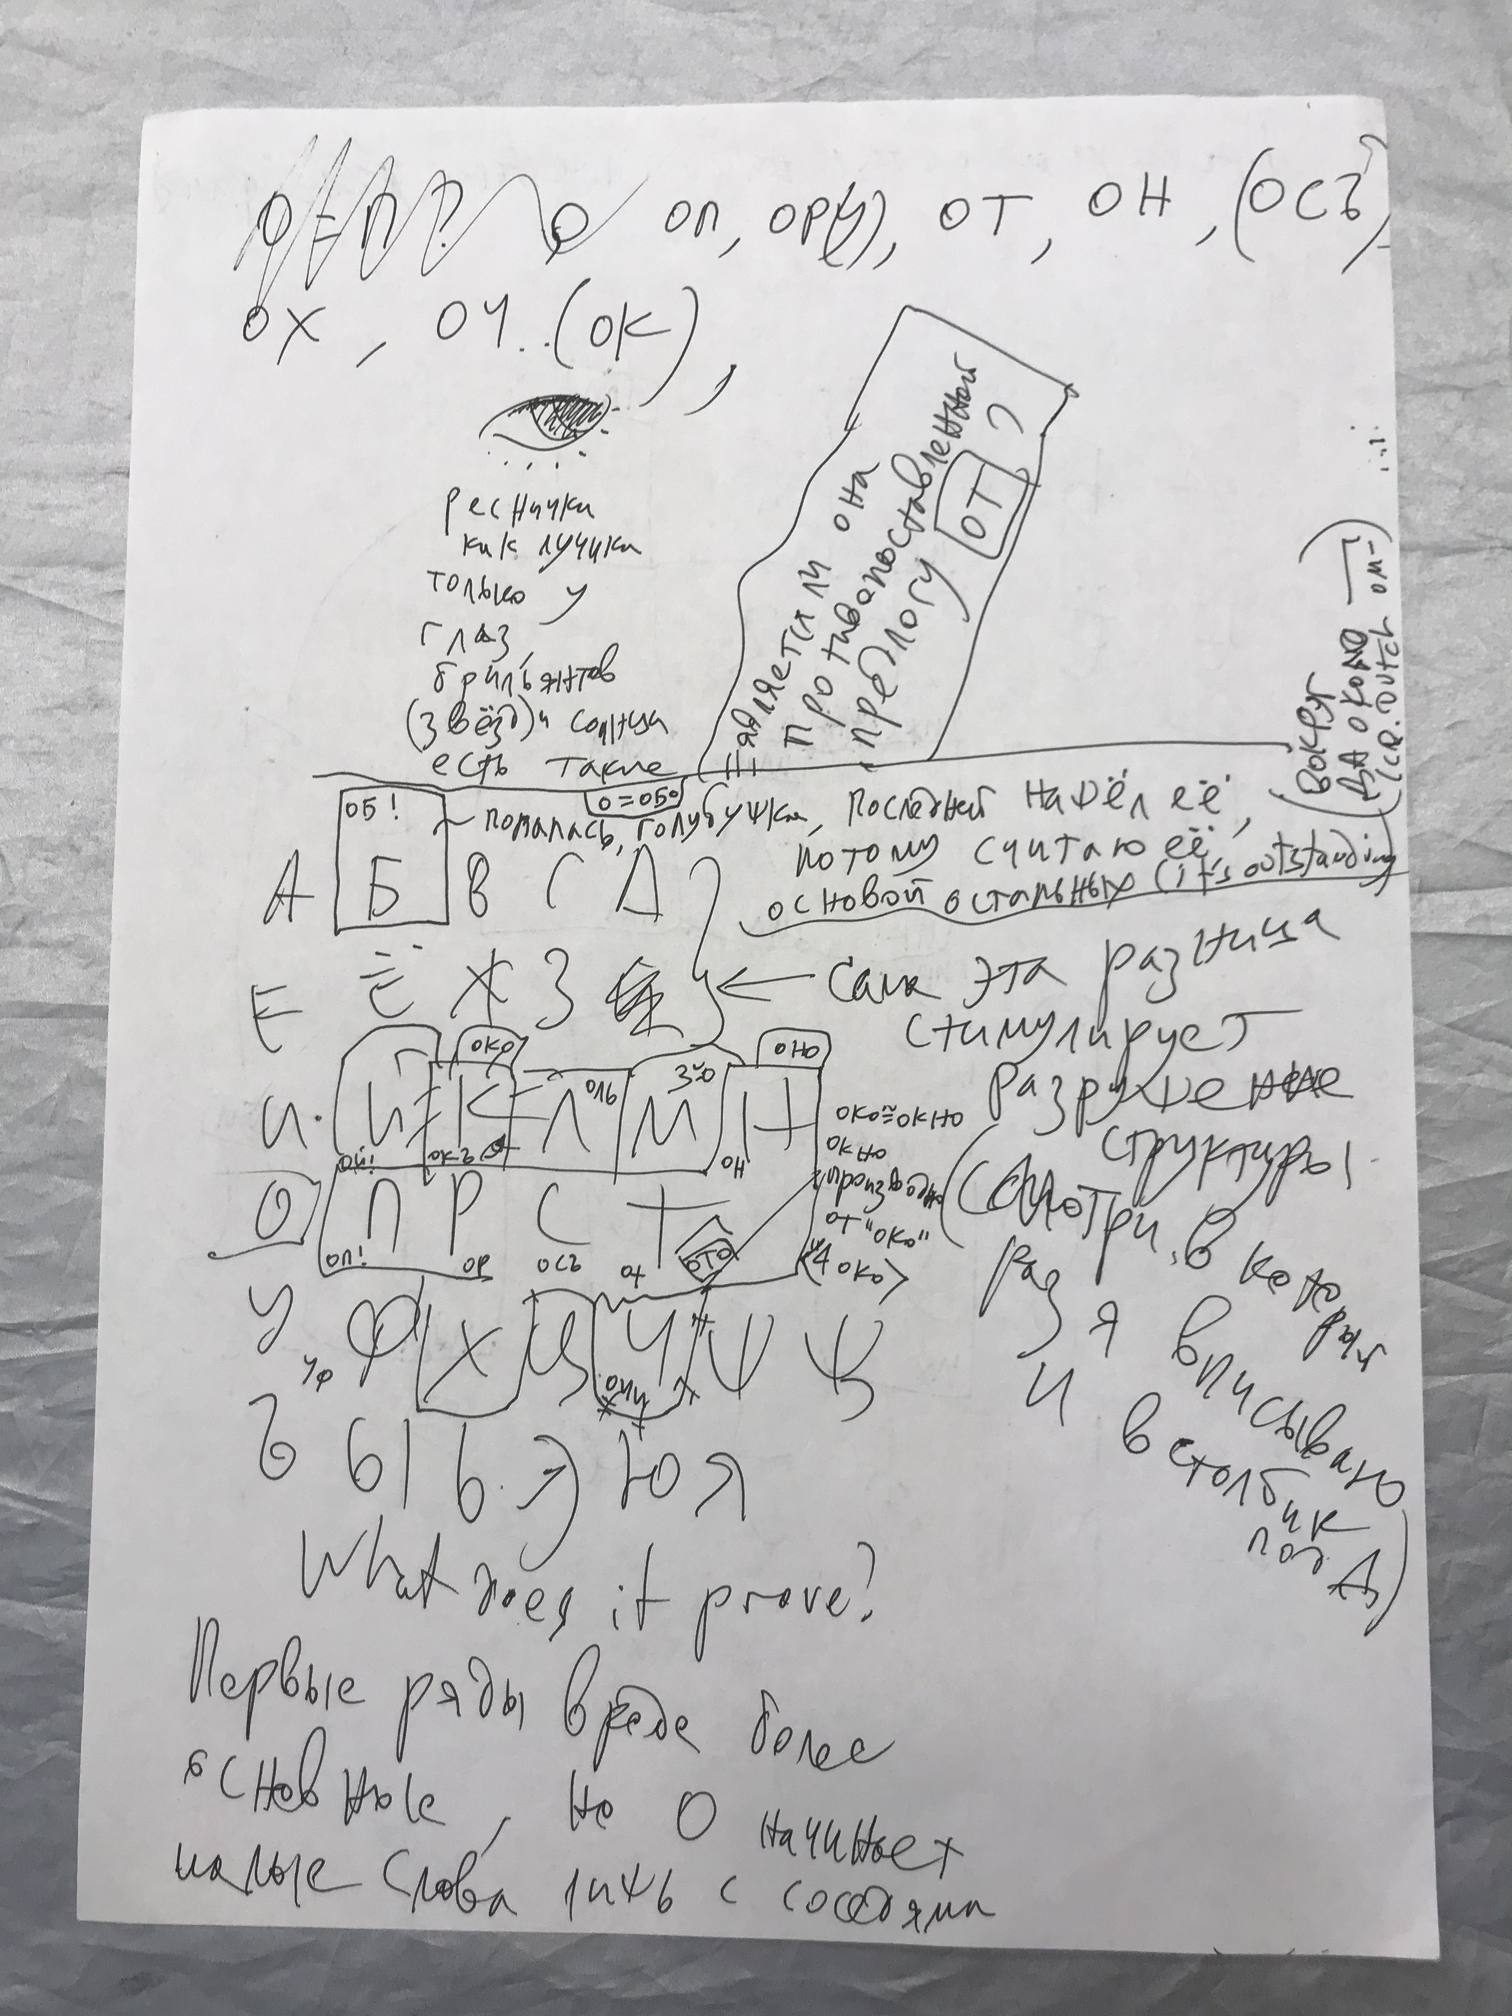 О ОП, ОР(У), ОТ, ОН, (ОСЬ),
ОХ, ОЧ..(ОК),
реснички
как лучики
только у
глаз,
брильянтов
(звёзд) и солнца
есть такие
является ли она
противопоставленной
предлогу ОТ?
вокруг
(cр. Dutch om-)
ОБ!
О=ОБО
попалась, голубушка, последней нашёл её,
потому считаю её
основой остальных (it's outstanding)
А Б В Г Д
Е Ё Ж З
← Сама эта разница
стимулирует
разрушение
структуры.
(Смотри, в который
раз я вписываю
И в столбик
под Д)
око оль оно
И Й К Л М Н
ой! он
око≈окно
окно
производно
от "око"
О П Р С Т
оп! ор ось от ото
У Ф Х Ц Ч Ш Щ
уф очи
Ъ Ы Ь Э Ю Я
What does it prove?
Первые ряды вроде более
основные, но О начинает
малые слова лишь с соседями